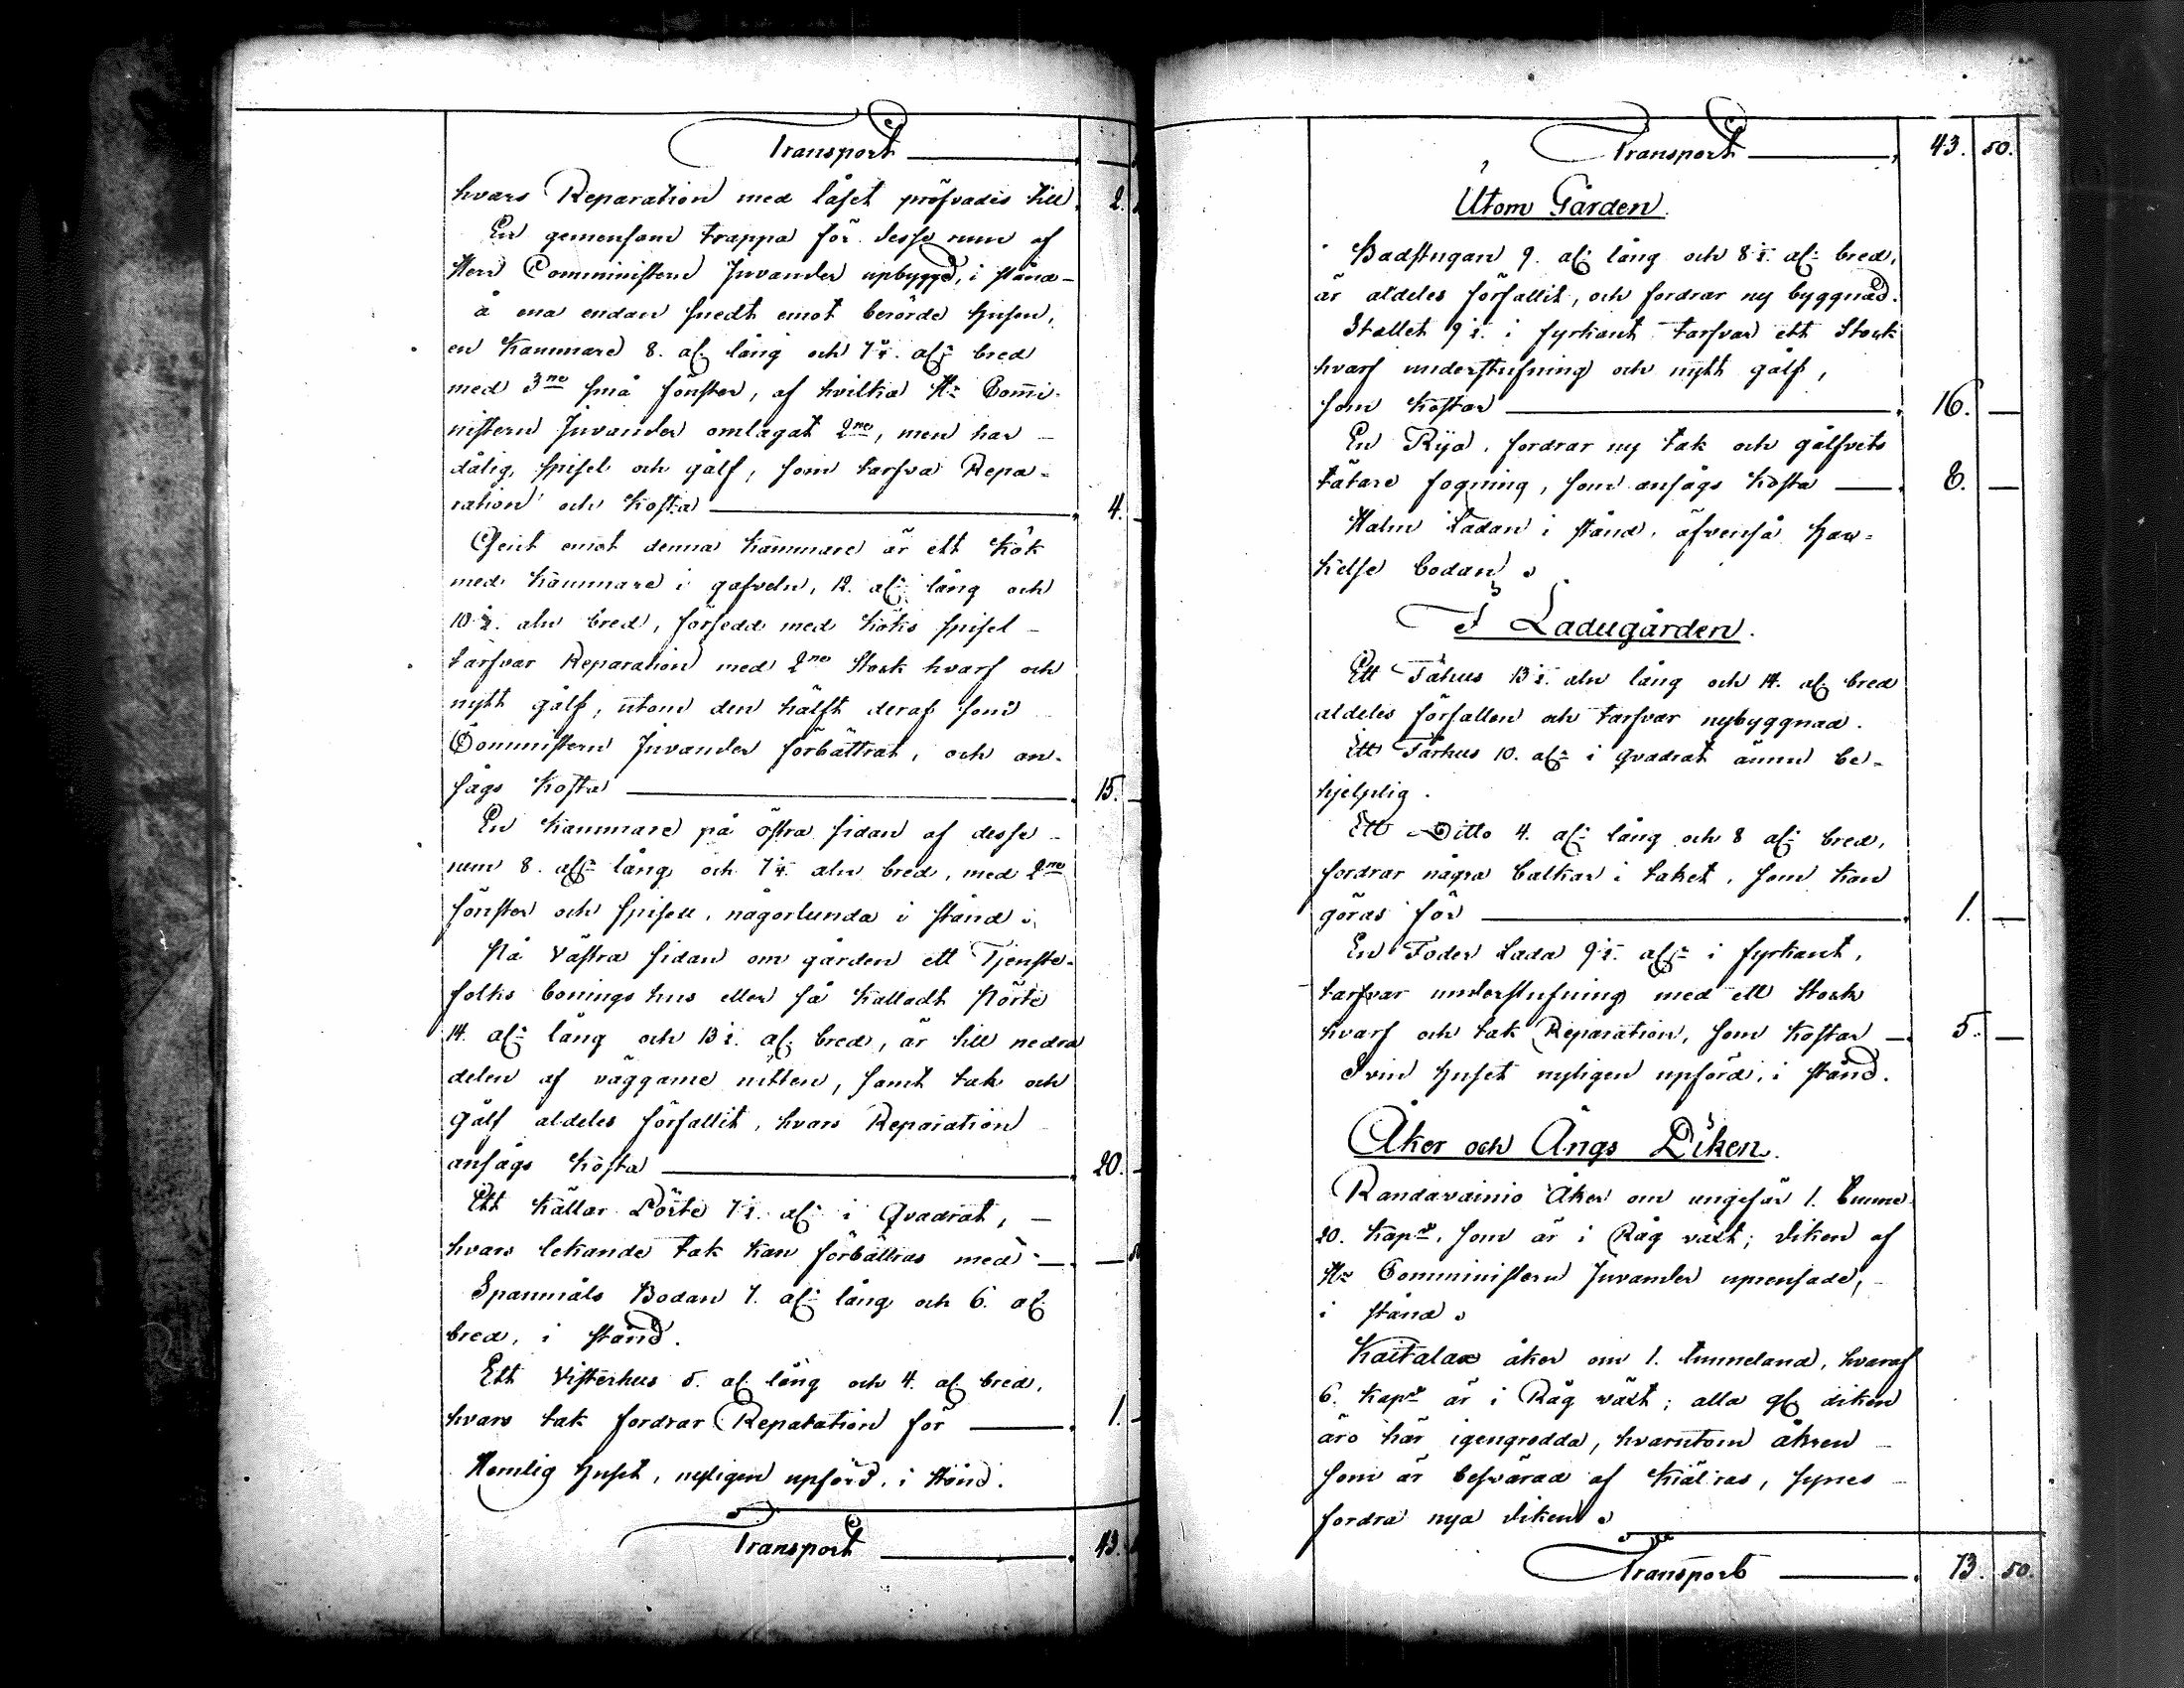 Transport
hvars Reparation med låset pröfvades till 2.
En gemensam trappa för desse rum af
Herr Comministern Juvander upbyggd, i stånd
å ena endan snedt emot berörde husen,
en Kammare 8. al:r lång och 7½. al:r bred
med 3ne små fönster, af hvilka Hr Commi-
nistern Juvander omlagat 2ne, men har
dålig spisel och gålf, som tarfva Repa-
ration och kosta 4.
Gent emot denna Kammare är ett Kök
med Kammare i gafveln, 12. al:r lång och
10½. aln bred, försedd med köks spisel
tarfvar Reparation med 2ne Stock hvarf och
nytt gålf, utom den hälft deraf som
Comministern Juvander förbättrat, och an-
sågs kosta 15.
En Kammare på östra sidan af desse
rum 8. al:r lång och 7¼. aln bred, med 2ne
fönster och spisell, någorlunda i stånd.
På västra sidan om gården ett Tjenste-
folks bonings hus eller så kalladt Pörte
14. al:r lång och 13½. al:r bred, är till nedra
delen af väggarne rutten, samt tak och
gålf aldeles förfallit, hvars Reparation
ansågs kosta 20.
Ett Källar Pörte 7½. al:r i Qvadrat,
hvars lekande tak kan förbättras med
Spanmåls Bodan 7. al:r lång och 6. al:r
bred, i stånd.
Ett Visterhus 5. al:r lång och 4. al:r bred,
hvars tak fordrar Reparation för 1.
Hemlig huset, nyligen upförd, i stånd.
Transport 43.
Transport 43. 50.
Utom Gården.
Badstugan 9. al:r lång och 8½. al:r bred,
är aldeles förfallit, och fordrar ny byggnad.
Stallet 9½. i fyrkant tarfvar ett Stock
hvarf understufning och nytt gålf,
som kostar 16.
En Rya, fordrar ny tak och gålfvets
tätare fogning, som ansågs kosta 8.
Halm Ladan i stånd, äfvenså hac-
kelse bodan.
I Ladugården.
Ett Fähus 13½. aln lång och 14. al:r bred
aldeles förfallen och tarfvar nybyggnad.
Ett Fårhus 10. al:r i qvadrat ännu be-
hjelplig.
Ett Ditto 4. al:r lång och 8 al:r bred,
fordrar några balkar i taket, som kan
göras för 1.
En Foder Lada 9½. al:r i fyrkant,
tarfvar understufning med ett Stock
hvarf och tak Reparation, som kostar 5.
Svin huset nyligen upförd, i stånd.
Åker och Ängs Diken.
Randavainio Åker om ungefär 1. tunne
20. kapr. som är i Råg växt; diken af
Hr Comministern Juvander uprensade,
i stånd.
Kaitala åker om 1. tunneland, hvaraf
6. kapr är i Råg växt; alla diken
äro här igengrodda, hvarutom åkren
som är besvärad af Kiälras, synes
fordra nya diken.
Transport 73. 50.